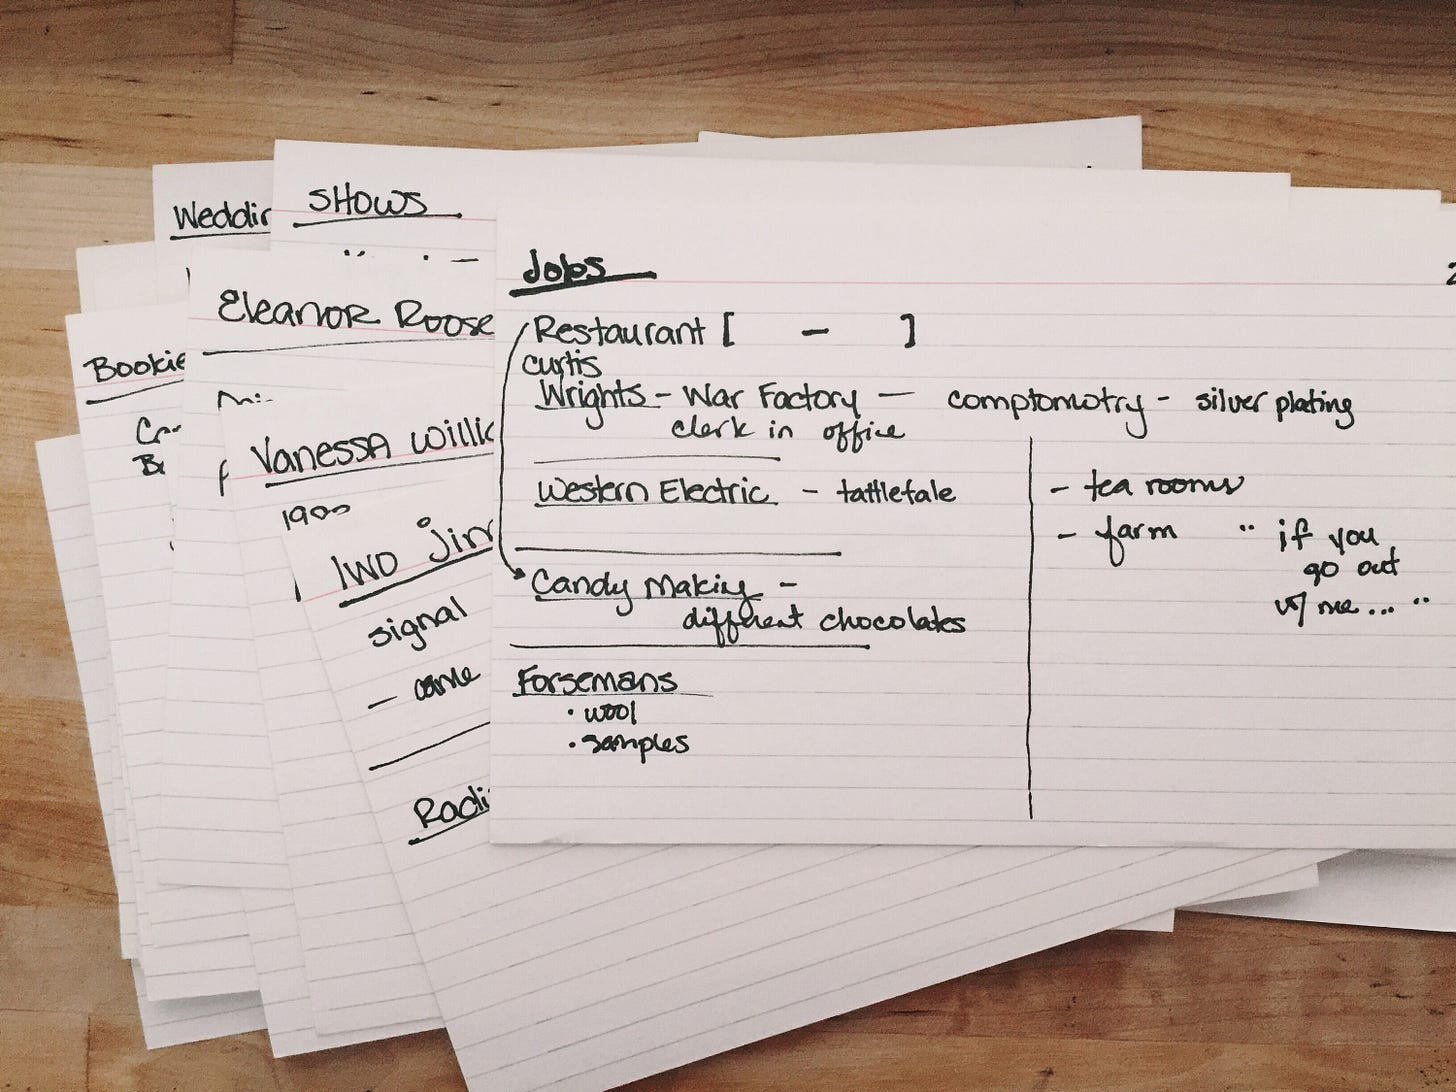 Weddin
SHOWS
Eleanor Roose
Bookie
Vanessa Willic
1900
Iwo Jim
signal
— came
Radi
Jobs
Restaurant [ — ]
curtis
Wrights - War Factory — comptomotry - silver plating
clerk in office
Western Electric - tattletale
Candy Making -
different chocolates
Forsemans
• wool
• samples
- tea rooms
- farm " if you
go out
w/ me... "